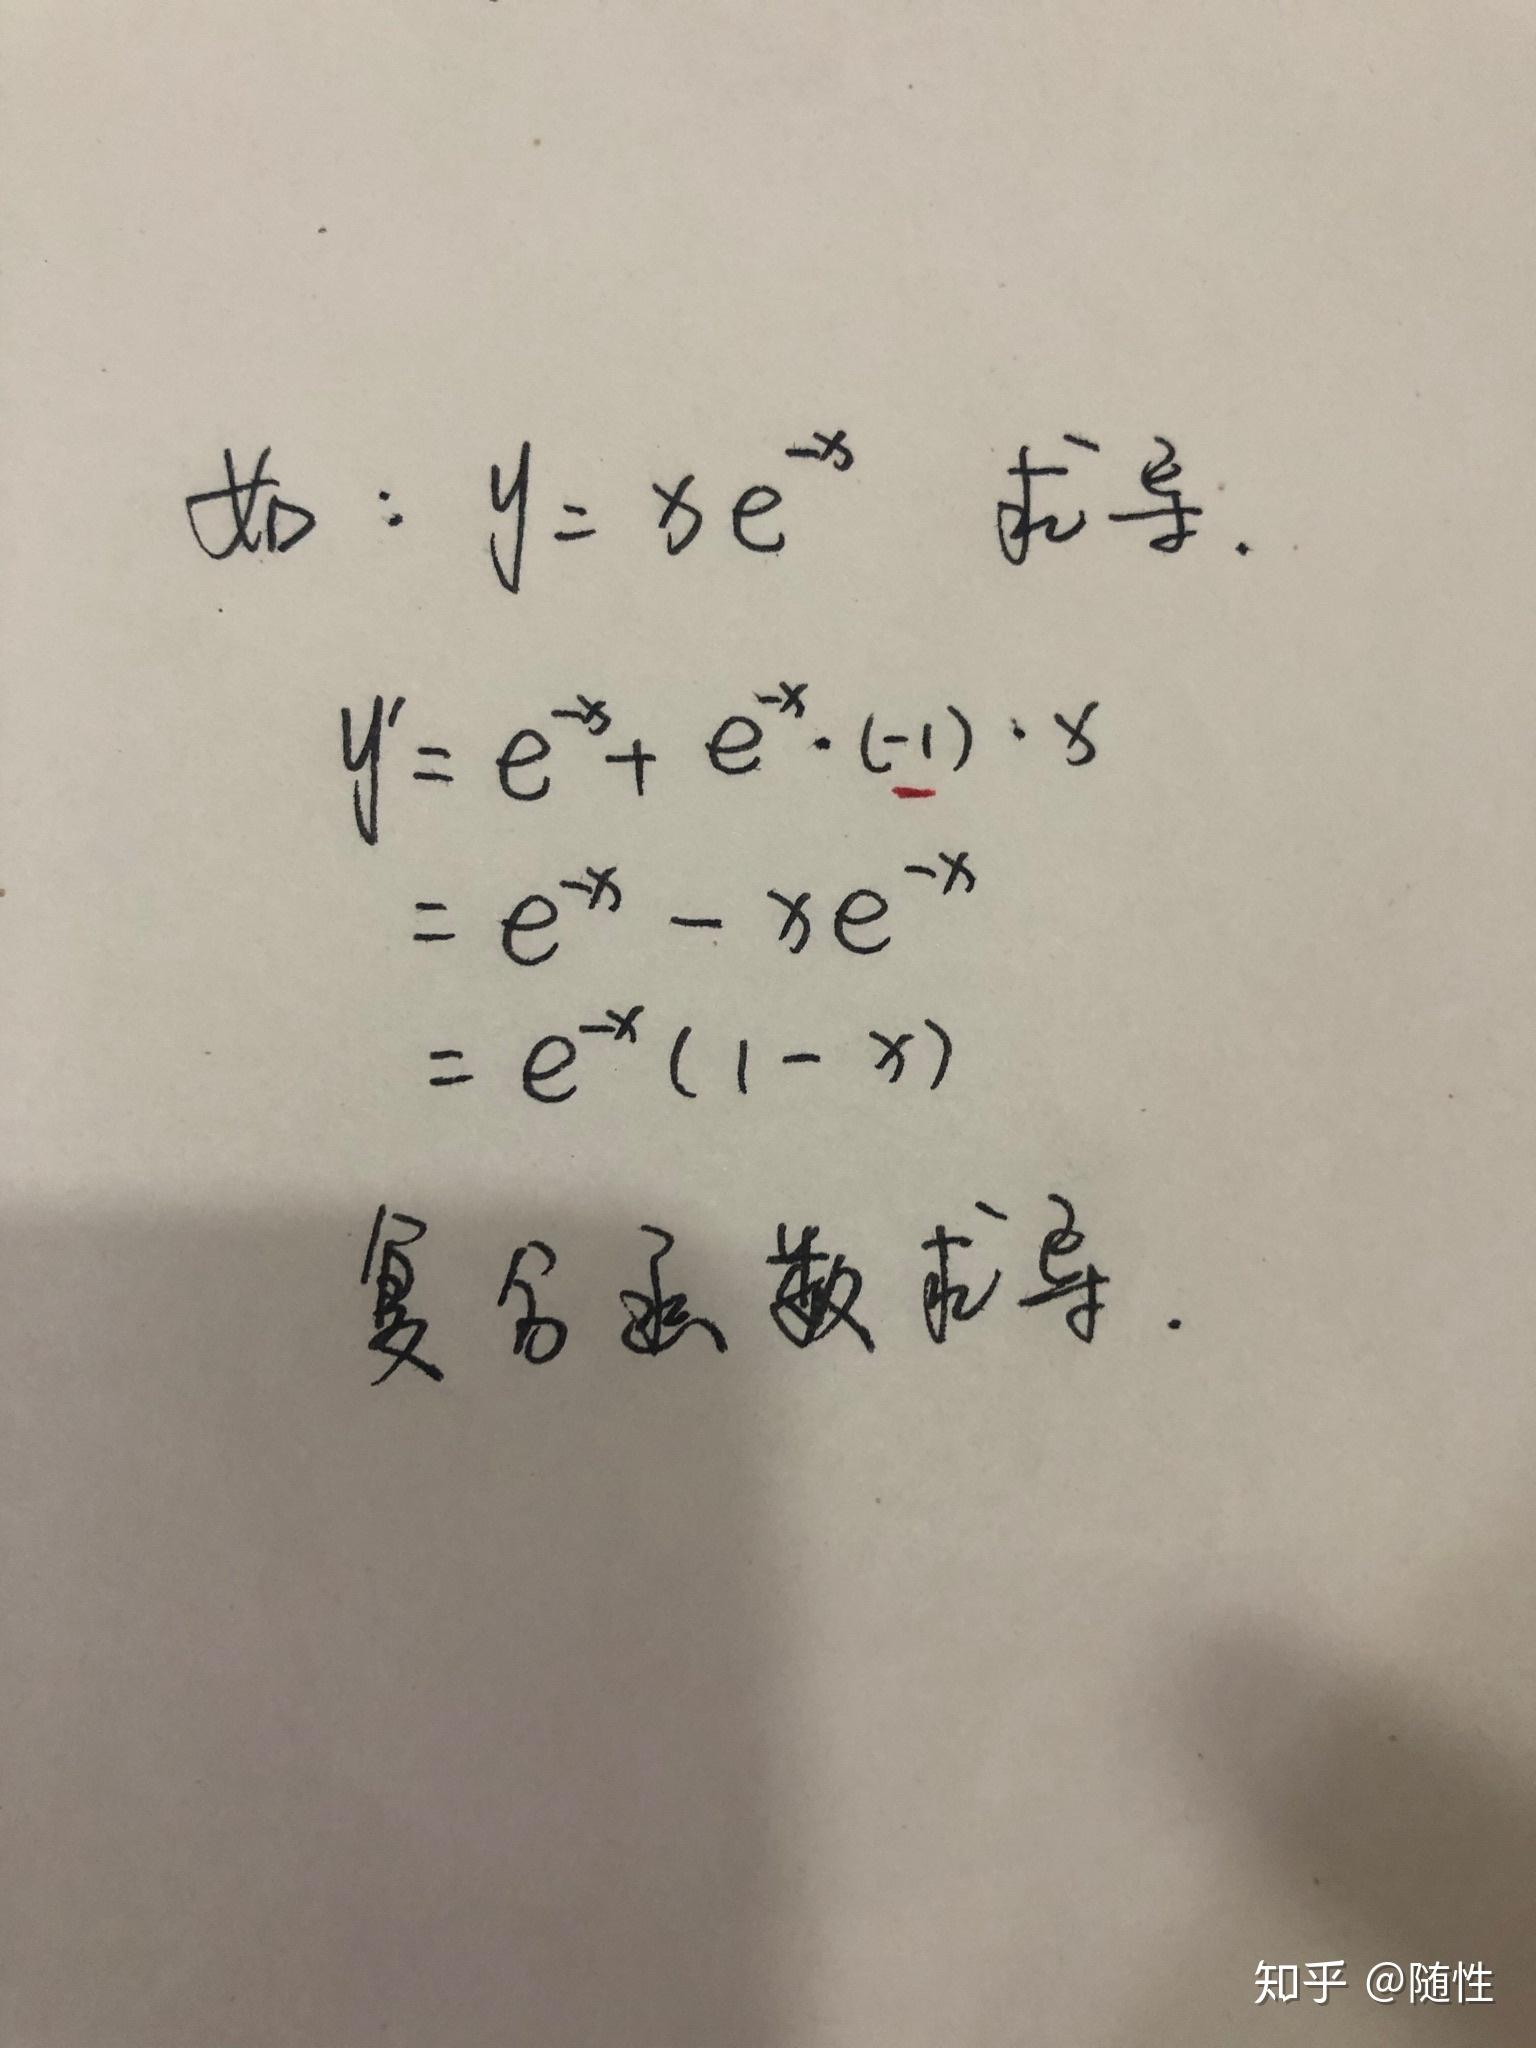 如：y = xe^{-x} 求导.
y' = e^{-x} + e^{-x}·(-1)·x
= e^{-x} - xe^{-x}
= e^{-x}(1-x)
复合函数求导.
知乎 @随性